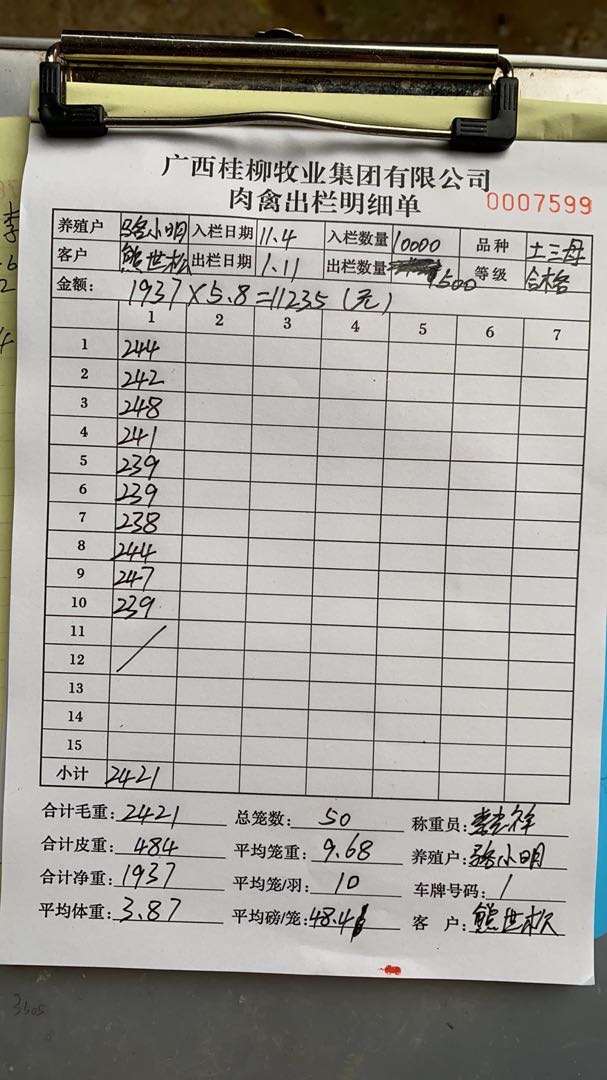 广西桂柳牧业集团有限公司
肉禽出栏明细单
0007599
养殖户 骆小明 入栏日期 11.4 入栏数量 10000 品种 土三母
客户 熊世松 出栏日期 1.11 出栏数量 9500 等级 合格
金额: 1937×5.8=11235(元)
1 2 3 4 5 6 7
1 244
2 242
3 248
4 241
5 239
6 239
7 238
8 244
9 247
10 239
11
12
13
14
15
小计 2421
合计毛重: 2421 总笼数: 50 称重员:
合计皮重: 484 平均笼重: 9.68 养殖户: 骆小明
合计净重: 1937 平均笼/羽: 10 车牌号码: /
平均体重: 3.87 平均磅/笼: 48.4 客 户: 熊世松
3505